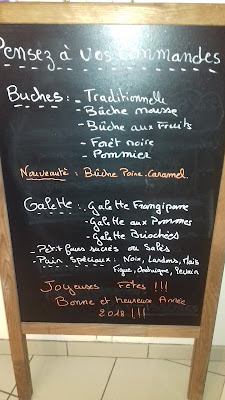 Pensez à vos commandes
Buches : - Traditionnelle
- Bûche mousse
- Bûche aux Fruits
- Forêt noire
- Pommier
Nouveauté : Bûche Poire-Caramel
Galette : - Galette Frangipane
- Galette aux Pommes
- Galette Briochées
- Petit fours sucrés ou salés
- Pain Spéciaux : Noix, Lardons, Maïs
Figue,
Joyeuses Fêtes !!!
Bonne et heureuse Année
2018 !!!